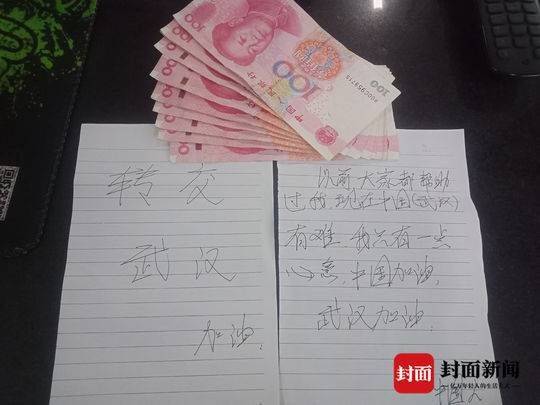 100
中国人民银行
100
转交
武汉
加油.
以前大家都帮助
过我,现在中国(武汉)
有难.我只有一点
心意,中国加油,
武汉加油.
中国人
封面
封面新闻
亿万年轻人的生活方式